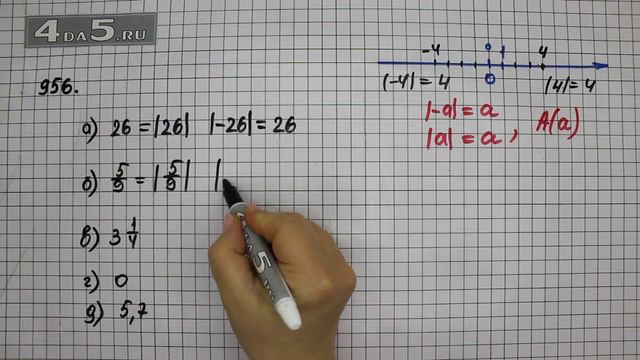 4DA5.RU
956.
-4 0 1 4
|-4| = 4 0 |4| = 4
|-a| = a
|a| = a, A(a)
а) 26 = |26| |-26| = 26
б) 5/9 = |5/9| |
в) 3 1/4
г) 0
д) 5,7